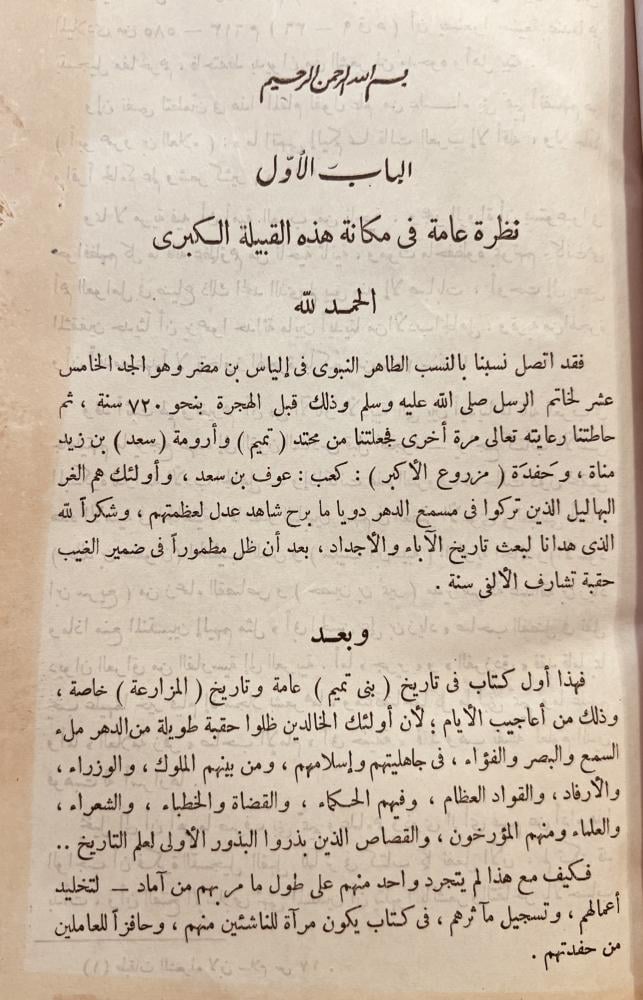 بسم الله الرحمن الرحيم
الباب الأوّل
نظرة عامة فى مكانة هذه القبيلة الكبرى
الحمد لله
فقد اتصل نسبنا بالنسب الطاهر النبوى فى إلياس بن مضر وهو الجد الخامس
عشر لخاتم الرسل صلى الله عليه وسلم وذلك قبل الهجرة بنحو ٧٢٠ سنة ، ثم
حاطتنا رعايته تعالى مرة أخرى فجعلتنا من محتد ( تميم ) وأرومة ( سعد ) بن زيد
مناة ، وحَفدَة ( مزروع الأكبر ) : كعب : عوف بن سعد ، وأولئك هم الغر
البهاليل الذين تركوا فى مسمع الدهر دويا ما برح شاهد عدل لعظمتهم ، وشكراً لله
الذى هدانا لبعث تاريخ الآباء والأجداد ، بعد أن ظل مطموراً فى ضمير الغيب
حقبة تشارف الألفى سنة .
وبعد
فهذا أول كتاب فى تاريخ ( بنى تميم ) عامة وتاريخ ( المزارعة ) خاصة ،
وذلك من أعاجيب الأيام ؛ لأن أولئك الخالدين ظلوا حقبة طويلة من الدهر ملء
السمع والبصر والفؤاء ، فى جاهليتهم وإسلامهم ، ومن بينهم الملوك ، والوزراء ،
والأرفاد ، والقواد العظام ، وفيهم الحكماء ، والقضاة والخطباء ، والشعراء ،
والعلماء ومنهم المؤرخون ، والقصاص الذين بذروا البذور الأولى لعلم التاريخ ..
فكيف مع هذا لم يتجرد واحد منهم على طول ما مر بهم من آماد — لتخليد
أعمالهم ، وتسجيل مآثرهم ، فى كتاب يكون مرآة للناشئين منهم ، وحافزاً للعاملين
من حفدتهم .